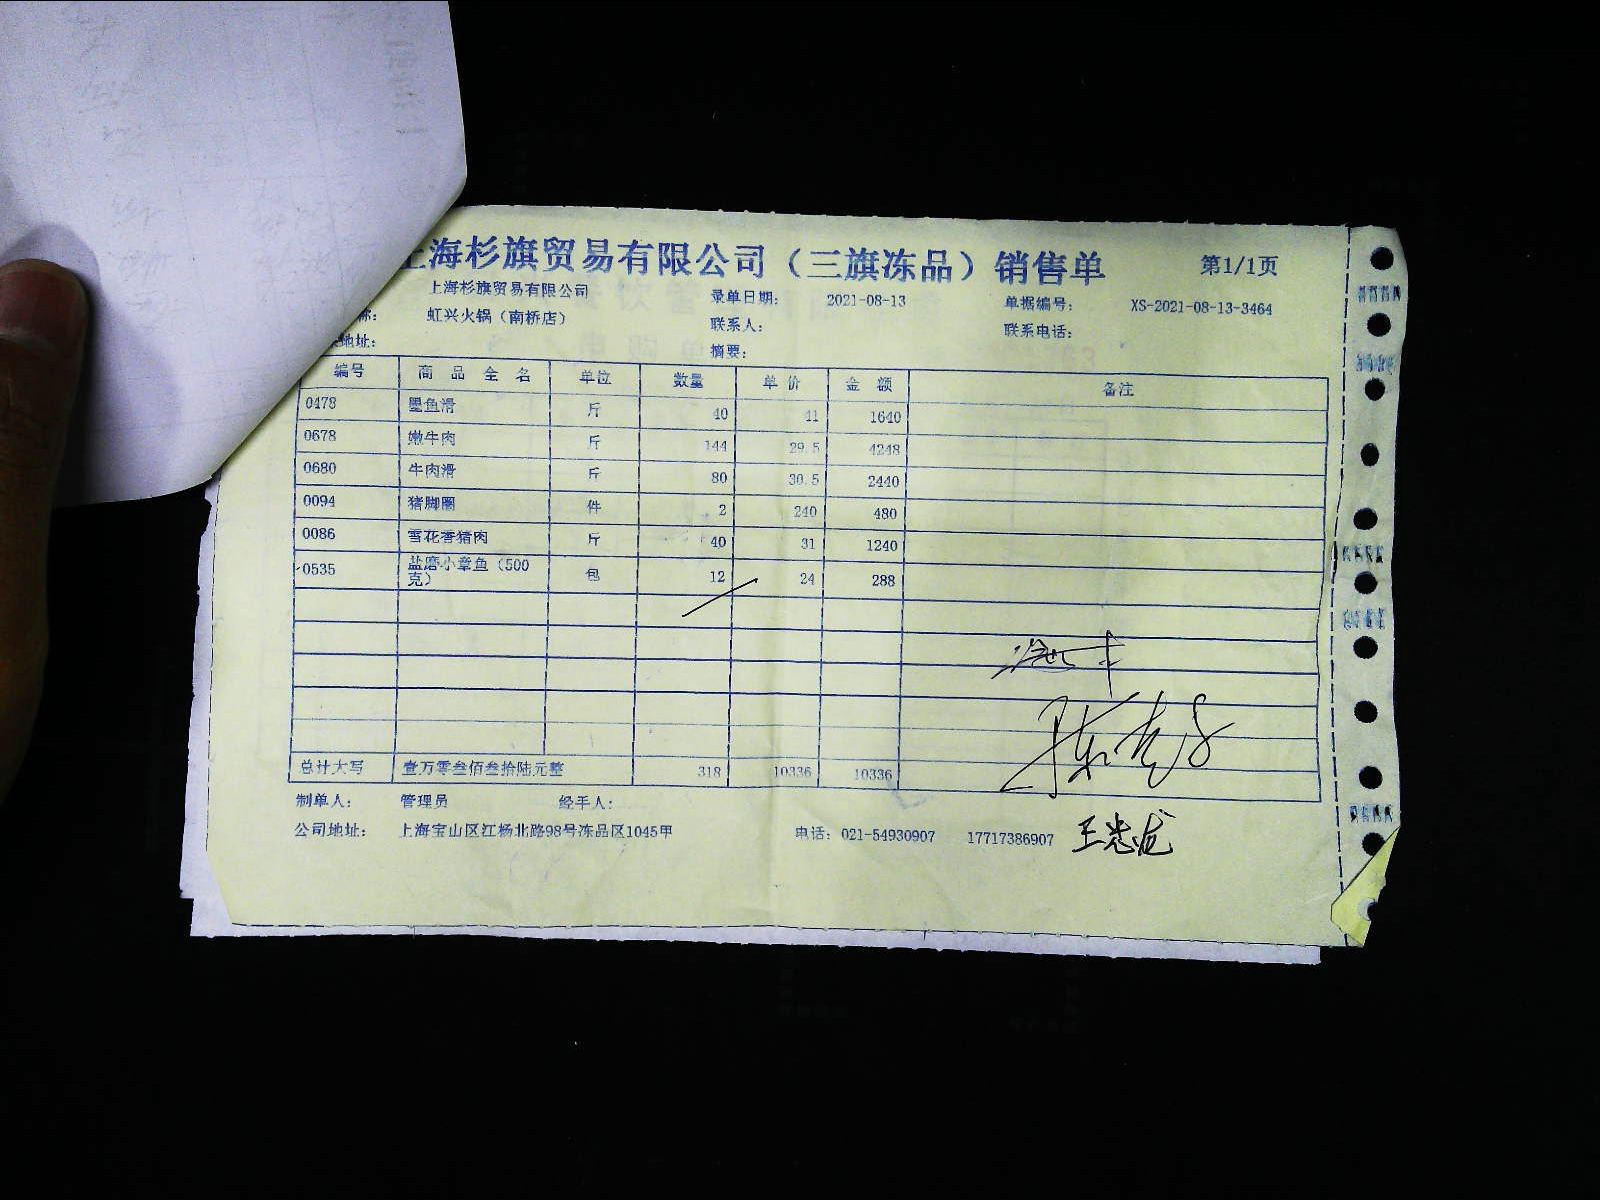 上海杉旗贸易有限公司（三旗冻品）销售单 第1/1页
上海杉旗贸易有限公司 录单日期： 2021-08-13 单据编号： XS-2021-08-13-3464
称： 虹兴火锅（南桥店） 联系人： 联系电话：
地址： 摘要：
编号 商品全名 单位 数量 单价 金额 备注
0478 墨鱼滑 斤 40 41 1640
0678 嫩牛肉 斤 144 29.5 4248
0680 牛肉滑 斤 80 30.5 2440
0094 猪脚圈 件 2 240 480
0086 雪花香猪肉 斤 40 31 1240
0535 盐磨小章鱼（500克） 包 12 24 288
总计大写 壹万零叁佰叁拾陆元整 318 10336 10336
制单人： 管理员 经手人：
公司地址： 上海宝山区江杨北路98号冻品区1045甲 电话：021-54930907 17717386907 王忠成